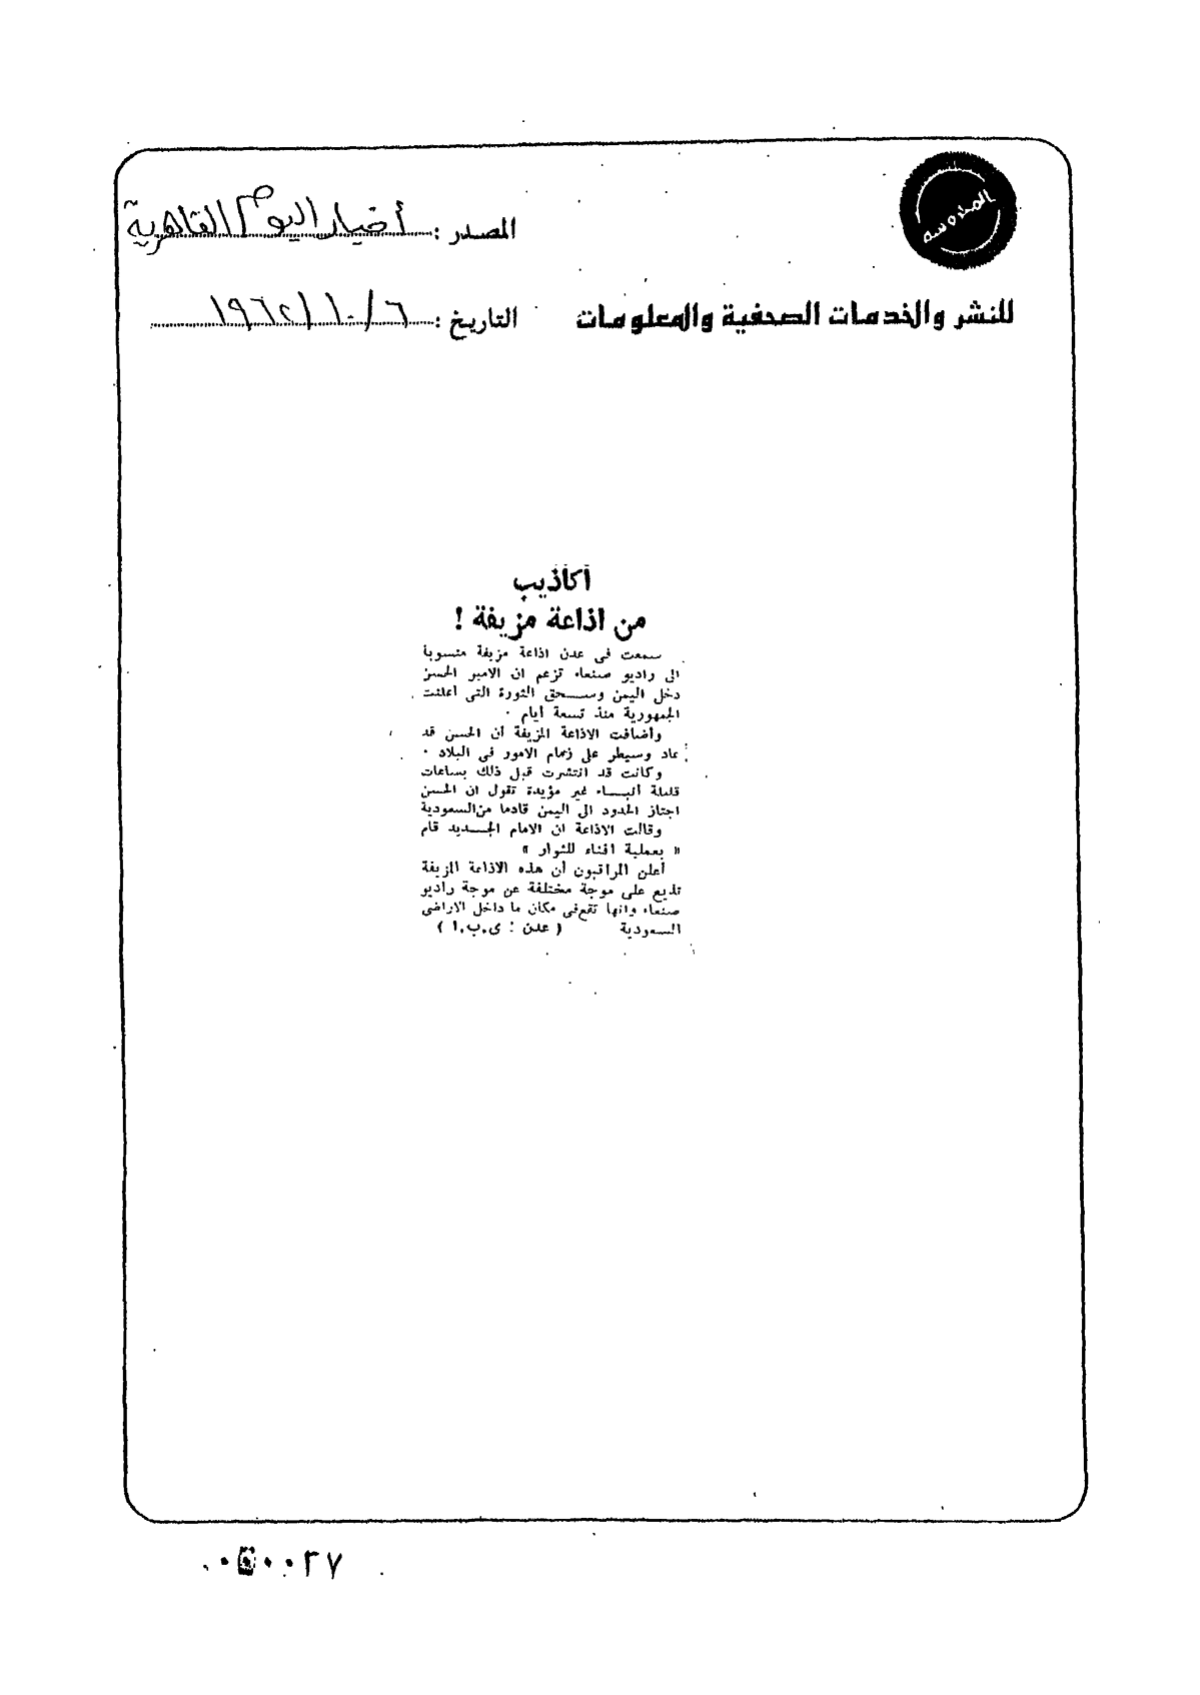 المدروسة
المصدر : أخبار اليوم القاهرية
للنشر والخدمات الصحفية والمعلومات
التاريخ : ٦/١٠/١٩٦٢
أكاذيب
من اذاعة مزيفة !
سمعت فى عدن اذاعة مزيفة منسوبة
الى راديو صنعاء تزعم ان الامير الحسن
دخل اليمن وسحق الثورة التى اعلنت
الجمهورية منذ تسعة أيام .
وأضافت الاذاعة المزيفة أن الحسن قد
عاد وسيطر على زمام الامور فى البلاد .
وكانت قد انتشرت قبل ذلك بساعات
قليلة أنباء غير مؤيدة تقول ان الحسن
اجتاز الحدود الى اليمن قادما من السعودية
وقالت الاذاعة ان الامام الجديد قام
« بعملية افناء للثوار »
أعلن المراقبون أن هذه الاذاعة المزيفة
تذيع على موجة مختلفة عن موجة راديو
صنعاء وانها تقع فى مكان ما داخل الاراضى
السعودية ( عدن : ى.ب.ا )
٢٧